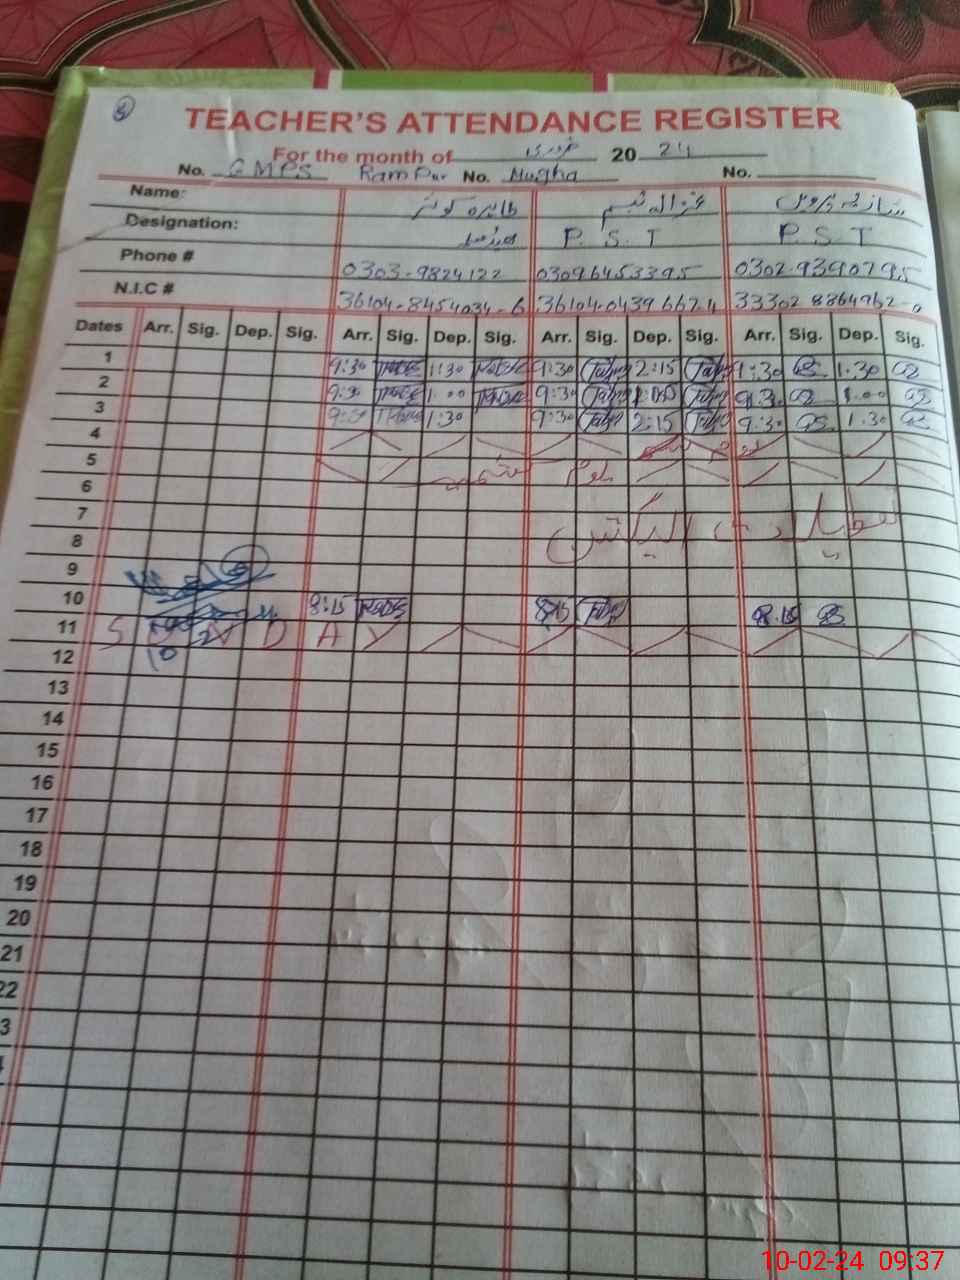 5
TEACHER'S ATTENDANCE REGISTER
For the month of فروری 2024
No. GMPS Rampur No. Mugha No.
Name: طاہرہ کوثر غزالہ تبسم شازیہ پروین
Designation: P.S.T P.S.T
Phone # 0303-9824122 03096453395 0302-9390795
N.I.C # 36104-8454034-6 36104-0439662-4 33302 8864962-0
Dates Arr. Sig. Dep. Sig. Arr. Sig. Dep. Sig. Arr. Sig. Dep. Sig. Arr. Sig. Dep. Sig.
1 9:30 1:30 9:30 2:15 9:30 1.30
2 9:30 1.00 9:30 1:00 9:30 1.00
3 9:30 1:30 9:30 2:15 9:30 1.30
4 یوم
5 یوم کشمیر
6
7 تعطیلات الیکشن
8
9
10 8:15 8:15 8.15
11 S U N D A Y
12
13
14
15
16
17
18
19
20
21
22
3
10-02-24 09:37